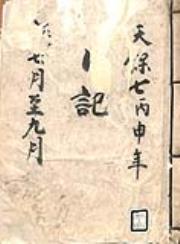 天保七丙申年
日記
七月至九月